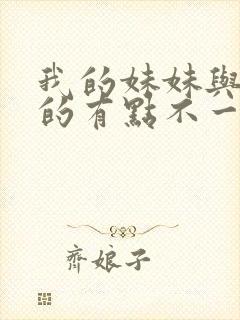 我的妹妹與
的有點不一
齊娘子